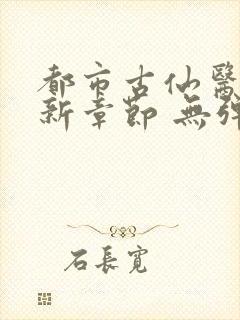 都市古仙醫
新章節 無彈
石長寬